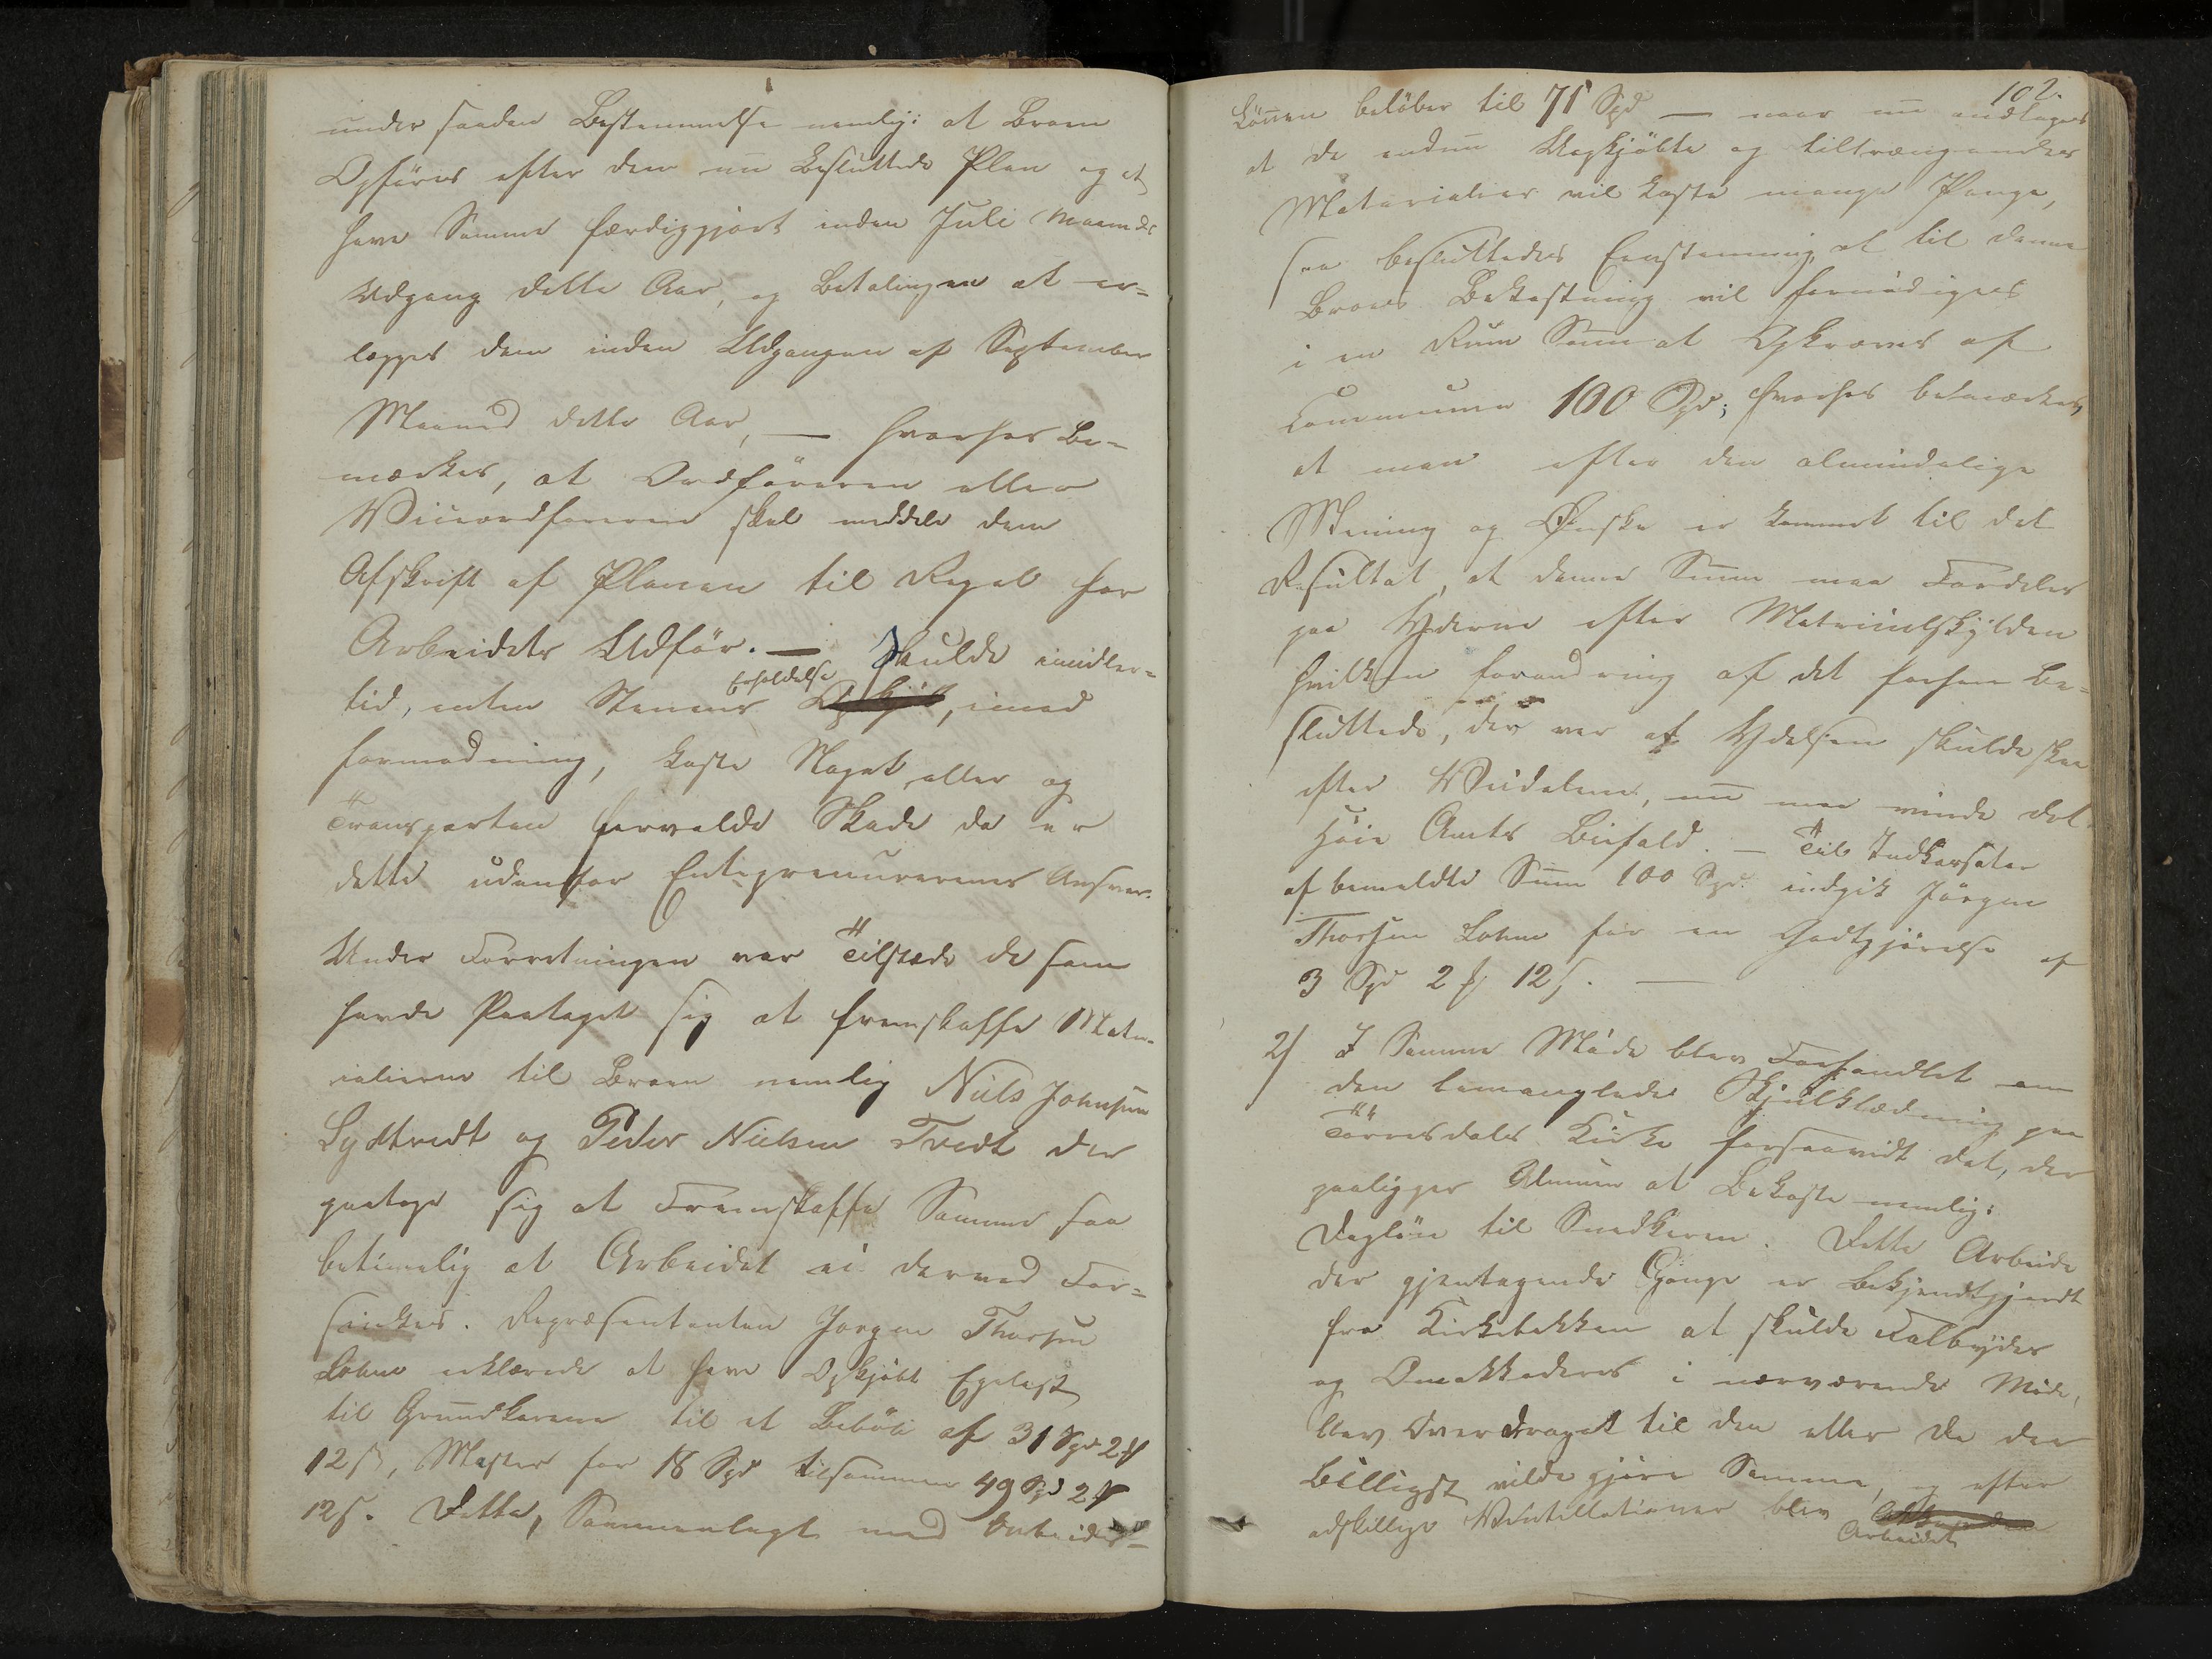 under saadan Bestemmelse nemlig: at Broen
Opføres efter den nu Besluttede Plan og at
have Samme færdiggjort inden Juli Maaneds
Udgang dette Aar, og Betalingen at er-
lægges dem inden Udgangen af September
Maaned dette Aar, — hvorhos Be-
mærkes, at Ordføreren eller
Viceordføreren skal meddele dem
Afskrift af Planen til Regel for
Arbeidets Udfør. — Skulde imidler-
tid, enten Stenens Erholdelse, imod
formodning, koste Noget eller og
Transporten forvolde Skade da er
dette udenfor Entreprenurerenes Ansvar.
Under Forretningen var Tilstæde de som
havde Paataget sig at fremskaffe Mate-
rialierne til Broen nemlig Niels Johnsen
Lydtvedt og Peder Nielsen Tvedt der
paatog sig at Fremskaffe Samme saa
betimelig at Arbeidet ei derved For-
sinkes. Repræsentanten Jørgen Thorsen
Lohne erklærede at have Opkjøbt Egelast
til Grundkarene til et Beløb af 31 Spd 2 ƒ
12 ß, Master for 18 Spd tilsammen 49 Spd 2 ƒ
12 ß. Dette, Sammenlagt med Arbeids-
102.
Lønnen beløber til 71 Spd — naar nu andtages
at de endnu Uopkjøbte og tiltrængendes
Materialier vil koste mange Penge,
saa besluttedes Eenstemmig, at til denne
Broes Bekostning vil fornødiges
i en Rum Sum at Opkræves af
Communen 100 Spd; hvorhos bemærkes,
at man efter den almindelige
Mening og Ønske er kommet til det
Resultat, at denne Sum maa Fordeles
paa Yderne efter Matriculskylden
hvilken forandring af det forhen Be-
sluttede, der var at Ydelsen skulde skee
efter, nu maa vinde det
Høie Amts Bifald. — Til Indkassator
af bemeldte Sum 100 Spd. indgik Jørgen
Thorsen Lohne for en Godtgjørelse af
3 Spd 2 ƒ 12 ß. —
2/ I Samme Møde blev Forhandlet om
den bemanglede Skjulklædning paa
Torresdals Kirke forsaavidt det, der
paaligger Almuen at Bekoste nemlig:
Dagløn til Snedkeren. Dette Arbeide
der gjentagende Gange er bekjendtgjordt
fra Kirkebakken at skulde Falbydes
og Omakkorderes i nærværende Møde,
blev Overdraget til den eller de der
Billigst vilde gjøre Samme, og efter
adskillige Ventillationer blev
Arbeidet